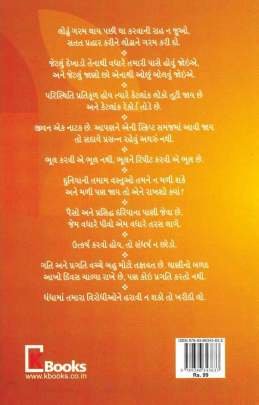 લોઢું ગરમ થાય પછી ઘા કરવાની રાહ ન જુઓ.
સતત પ્રહાર કરીને લોઢાને ગરમ કરી દો.
જેટલું દેખાડો તેનાથી વધારે તમારી પાસે હોવું જોઈએ,
અને જેટલું જાણો છો એનાથી ઓછું બોલવું જોઈએ.
પરિસ્થિતિ પ્રતિકૂળ હોય ત્યારે કેટલાંક લોકો તૂટી જાય છે
અને કેટલાંક રેકોર્ડ તોડે છે.
જીવન એક નાટક છે. આપણને એની સ્ક્રિપ્ટ સમજમાં આવી જાય
તો સદાયે પ્રસન્ન રહેવું અઘરું નથી.
ભૂલ કરવી એ ભૂલ નથી, ભૂલને રિપીટ કરવી એ ભૂલ છે.
દુનિયાની તમામ વસ્તુઓ તમને ન મળી શકે
અને મળી પણ જાય તો એને રાખશો ક્યાં?
પૈસો અને પ્રસિદ્ધિ દરિયાના પાણી જેવા છે.
જેમ વધારે પીવો એમ વધારે તરસ લાગે.
ઉત્કર્ષ કરવો હોય, તો સંઘર્ષ ન છોડો.
ગતિ અને પ્રગતિ વચ્ચે બહુ મોટો તફાવત છે. ઘાણીનો બળદ
આખો દિવસ ચાલ્યા કરે છે, પણ કોઈ પ્રગતિ કરતો નથી.
ધંધામાં તમારા વિરોધીઓને હરાવી ન શકો તો ખરીદી લો.
K Books
www.kbooks.co.in
Rs. 99